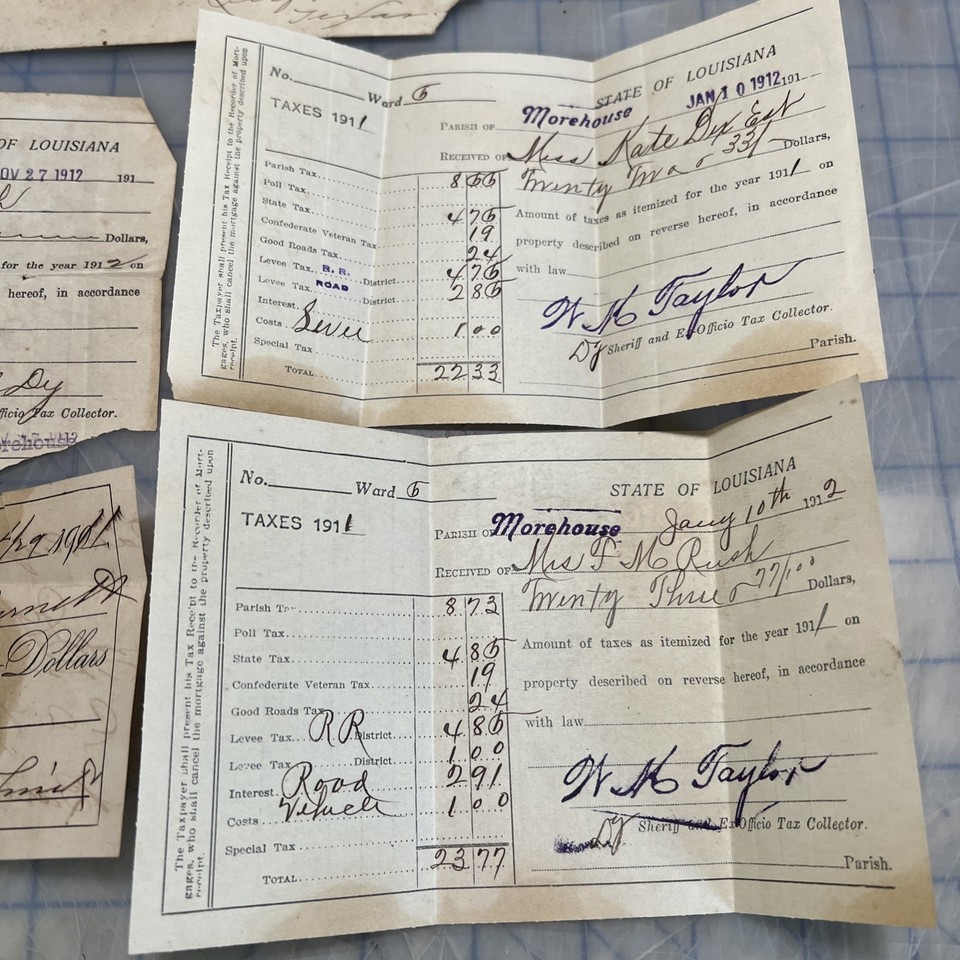 OF LOUISIANA
NOV 27 1912 191
Dollars,
for the year 1912 on
hereof, in accordance
Dy
fficio Tax Collector.
Morehouse
Dollars
The Taxpayer shall present his Tax Receipt to the Recorder of Mort-
gages, who shall cancel the mortgage against the property described upon
receipt.
No. Ward 5
TAXES 1911
STATE OF LOUISIANA
JAN 10 1912 191
PARISH OF Morehouse
RECEIVED OF Miss Kate Dix Est
Twenty Two & 33/ Dollars,
Amount of taxes as itemized for the year 1911 on
property described on reverse hereof, in accordance
with law
W M Taylor
Dy Sheriff and Ex-Officio Tax Collector.
Parish.
Parish Tax 8 55
Poll Tax
State Tax 4 75
Confederate Veteran Tax 19
Good Roads Tax 24
Levee Tax R. R. District 4 75
Levee Tax ROAD District 2 85
Interest
Costs 1 00
Special Tax
TOTAL 22 33
The Taxpayer shall present his Tax Receipt to the Recorder of Mort-
gages, who shall cancel the mortgage against the property described upon
receipt.
No. Ward 5
TAXES 1911
STATE OF LOUISIANA
PARISH OF Morehouse Jany 10th 1912
RECEIVED OF Mrs F M Rush
Twenty Three & 77/100 Dollars,
Amount of taxes as itemized for the year 1911 on
property described on reverse hereof, in accordance
with law
W M Taylor
Dy Sheriff and Ex-Officio Tax Collector.
Parish.
Parish Tax 8 73
Poll Tax
State Tax 4 85
Confederate Veteran Tax 19
Good Roads Tax 24
Levee Tax R R District 4 85
Levee Tax District 1 00
Interest Road 2 91
Vehicle
Costs 1 00
Special Tax
TOTAL 23 77